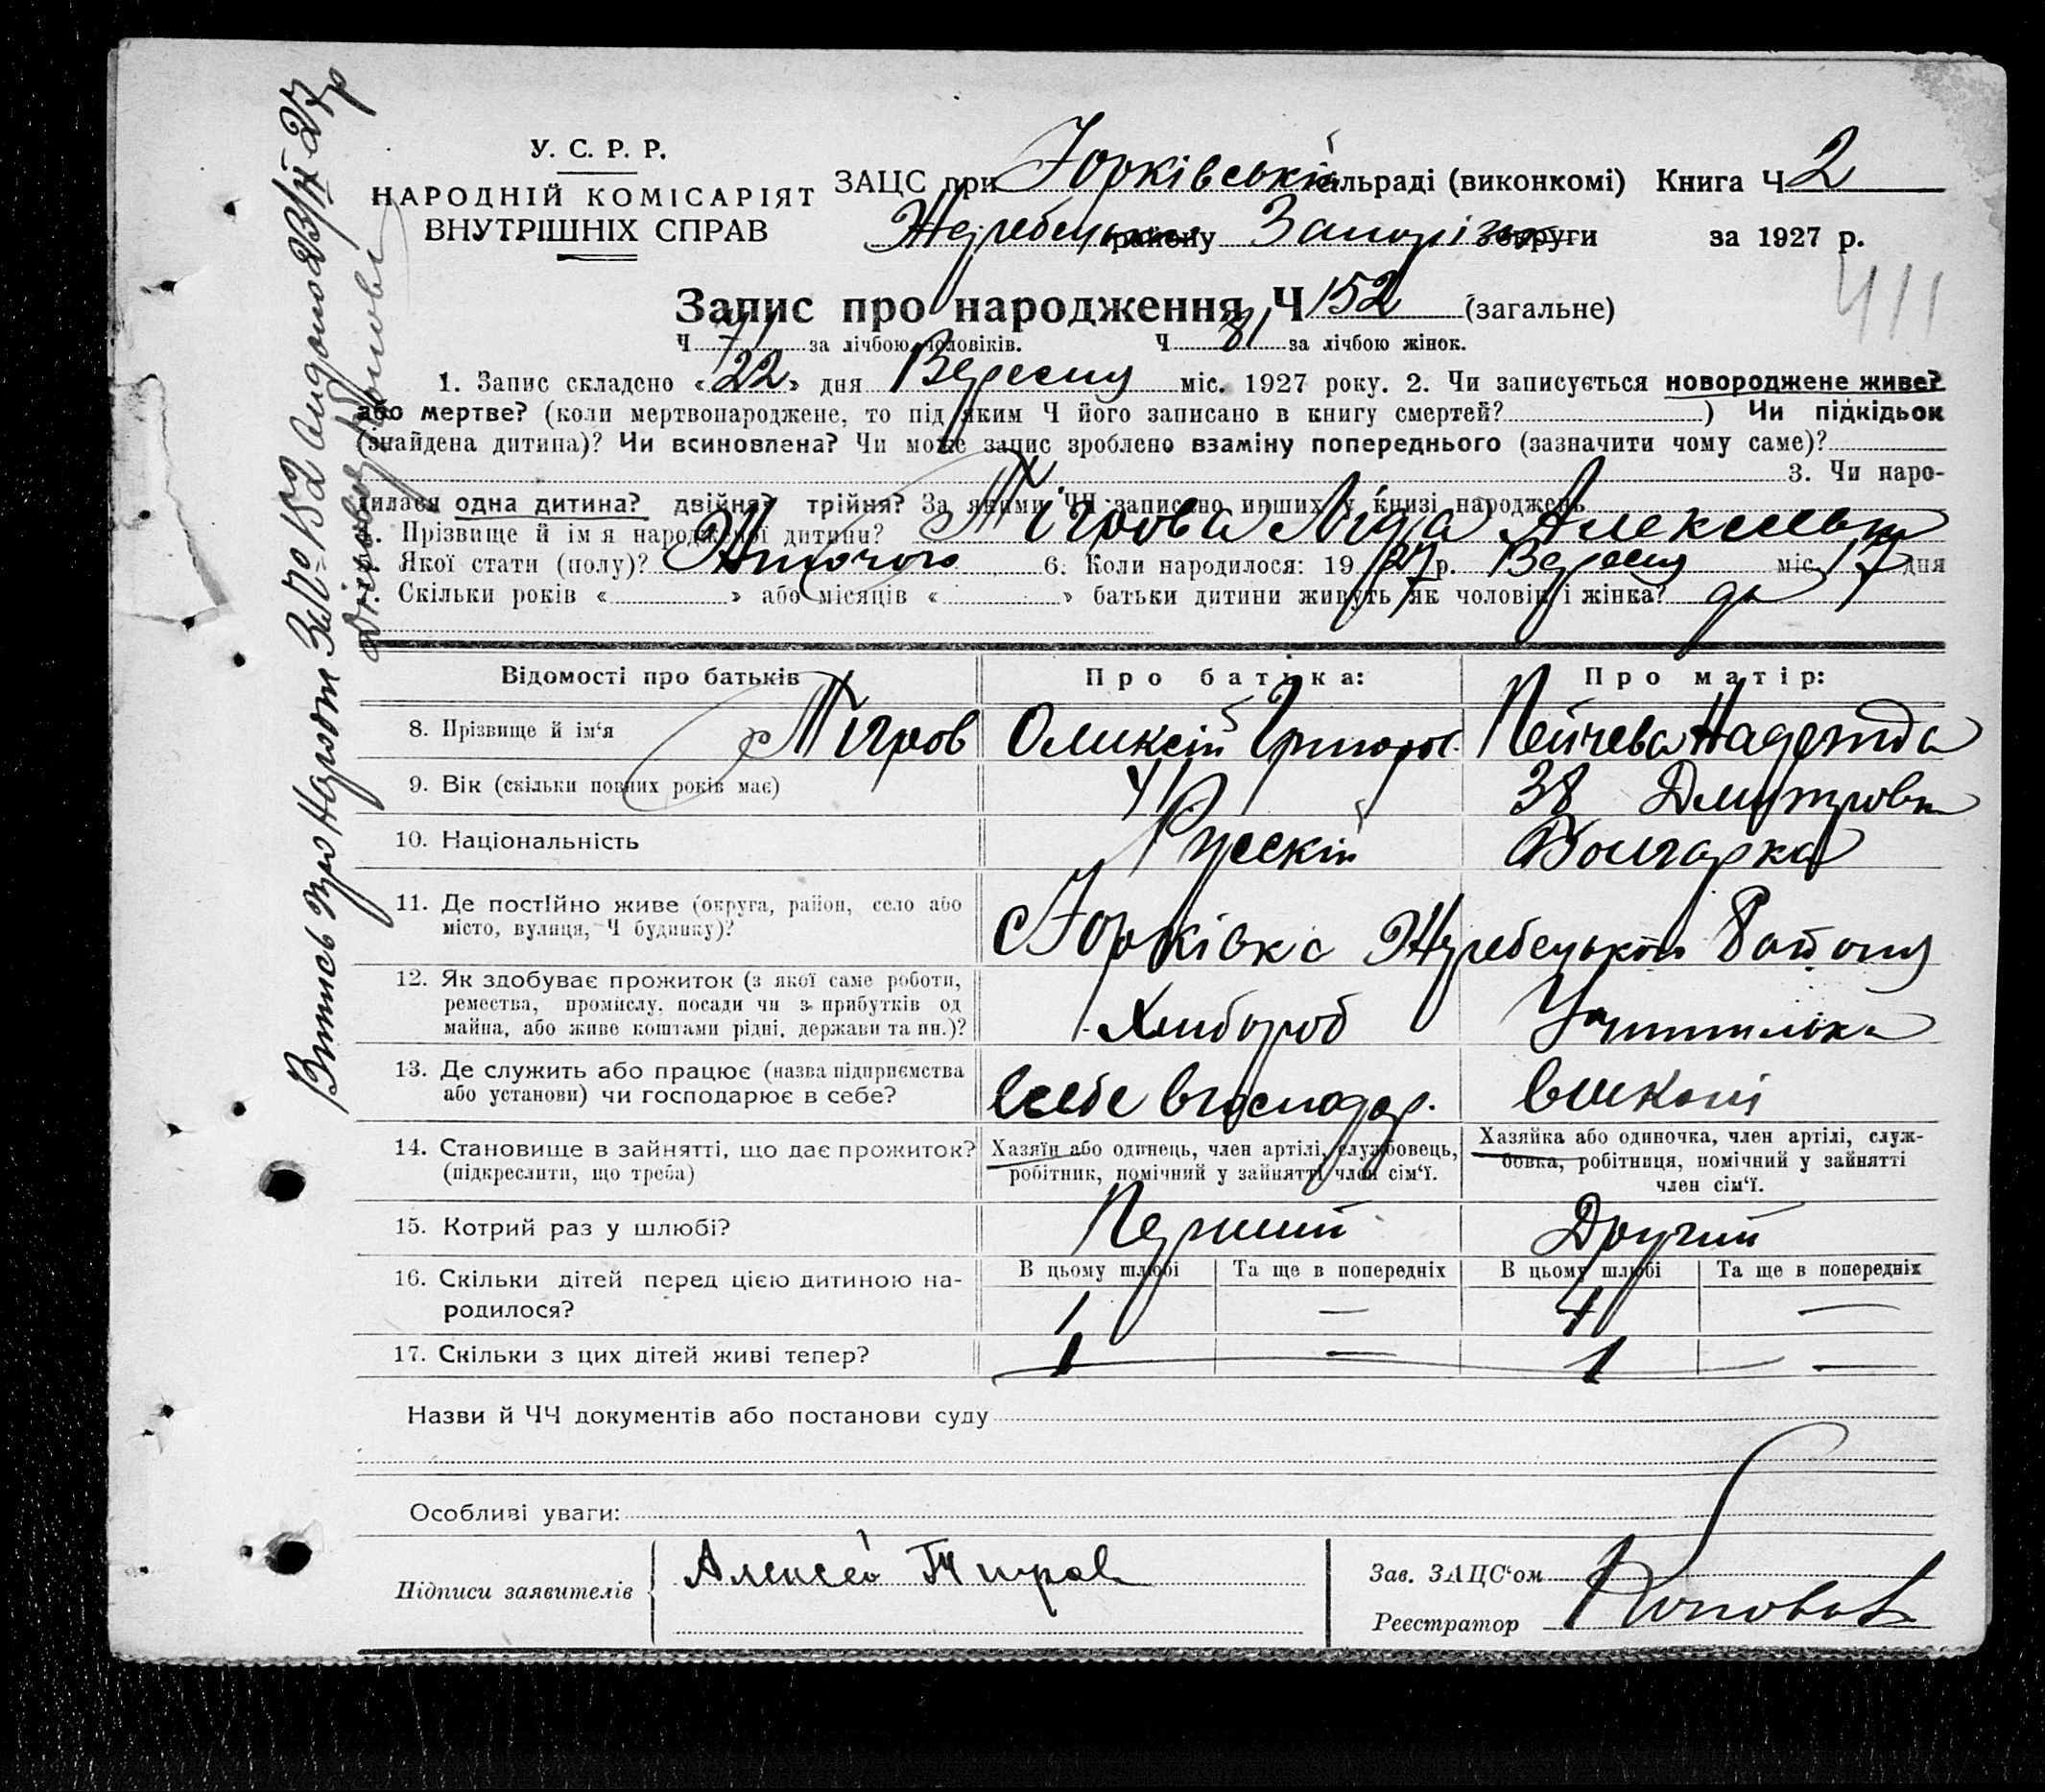 У. С. Р. Р.
НАРОДНІЙ КОМІСАРІЯТ
ВНУТРІШНІХ СПРАВ
ЗАЦС при Юрківській сільраді (виконкомі) Книга Ч 2
Жеребецьк району Запоріз округи за 1927 р.
411
Запис про народження Ч 152 (загальне)
Ч 71 за лічбою чоловіків. Ч 81 за лічбою жінок.
1. Запис складено «22» дня Вересня міс. 1927 року. 2. Чи записується новороджене живе?
або мертве? (коли мертвонароджене, то під яким Ч його записано в книгу смертей? ) Чи підкідьок
(знайдена дитина)? Чи всиновлена? Чи може запис зроблено взаміну попереднього (зазначити чому саме)?
3. Чи наро-
дилася одна дитина? двійня? трійня? За якими ЧЧ записано инших у книзі народжень
. Прізвище й ім я народженої дитини? Тігрова Ліда Алексеевн
. Якої стати (полу)? Жіночого 6. Коли народилося: 1927 р. Вересня міс. 17 дня
. Скільки років « » або місяців « » батьки дитини живуть як чоловік і жінка? да
Відомості про батьків Про батька: Про матір:
8. Прізвище й ім‘я Тігров Олексій Григоров. Пейчева Надежда
9. Вік (скільки повних років має) 41 38 Дмитровн
10. Національність Рускій Болгарка
11. Де постійно живе (округа, район, село або
місто, вулиця, Ч будинку)? с Юрківка Жеребецького Району
12. Як здобуває прожиток (з якої саме роботи,
ремества, промислу, посади чи з прибутків од
майна, або живе коштами рідні, держави та ин.)? Хлибороб Учителька
13. Де служить або працює (назва підприємства
або установи) чи господарює в себе? всебе вгосподар. вшколі
14. Становище в зайнятті, що дає прожиток?
(підкреслити, що треба)
Хазяїн або одинець, член артілі, службовець,
робітник, помічний у зайнятті член сім‘ї.
Хазяйка або одиночка, член артілі, служ-
бовка, робітниця, помічний у зайнятті
член сім‘ї.
15. Котрий раз у шлюбі? Перший Другий
16. Скільки дітей перед цією дитиною на-
родилося?
В цьому шлюбі Та ще в попередніх В цьому шлюбі Та ще в попередніх
1 — 4 —
17. Скільки з цих дітей живі тепер? 1 — 1 —
Назви й ЧЧ документів або постанови суду
Особливі уваги:
Підписи заявителів Алексей Тигров
Зав. ЗАЦС‘ом
Реєстратор
Випись про Народж За № 152